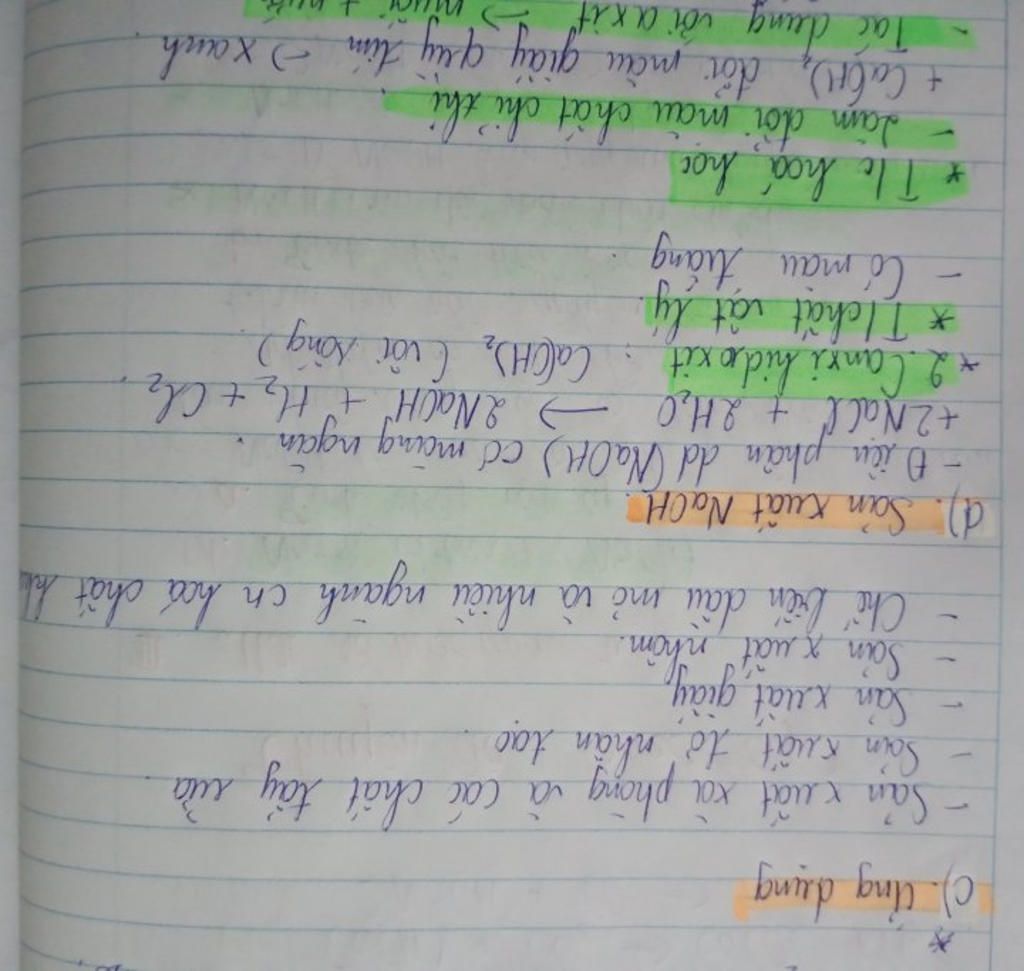 *
c). Ứng dụng
- Sản xuất xà phòng và các chất tẩy rửa.
- Sản xuất tơ nhân tạo.
- Sản xuất giấy
- Sản xuất nhôm.
- Chế biến dầu mỏ và nhiều ngành cn hoá chất
d). Sản xuất NaOH.
- Điện phân dd (NaOH) có màng ngăn.
+ 2NaCl + 2H₂O → 2NaOH + H₂ + Cl₂.
* 2. Canxi hidroxit : Ca(OH)₂ (vôi sống).
* T/chất vật lý.
- Có màu trắng.
* T/c hoá học
- Làm đổi màu chất chỉ thị.
+ Ca(OH)₂ đổi màu giấy quỳ tím → xanh.
- Tác dụng với axit → muối + nước